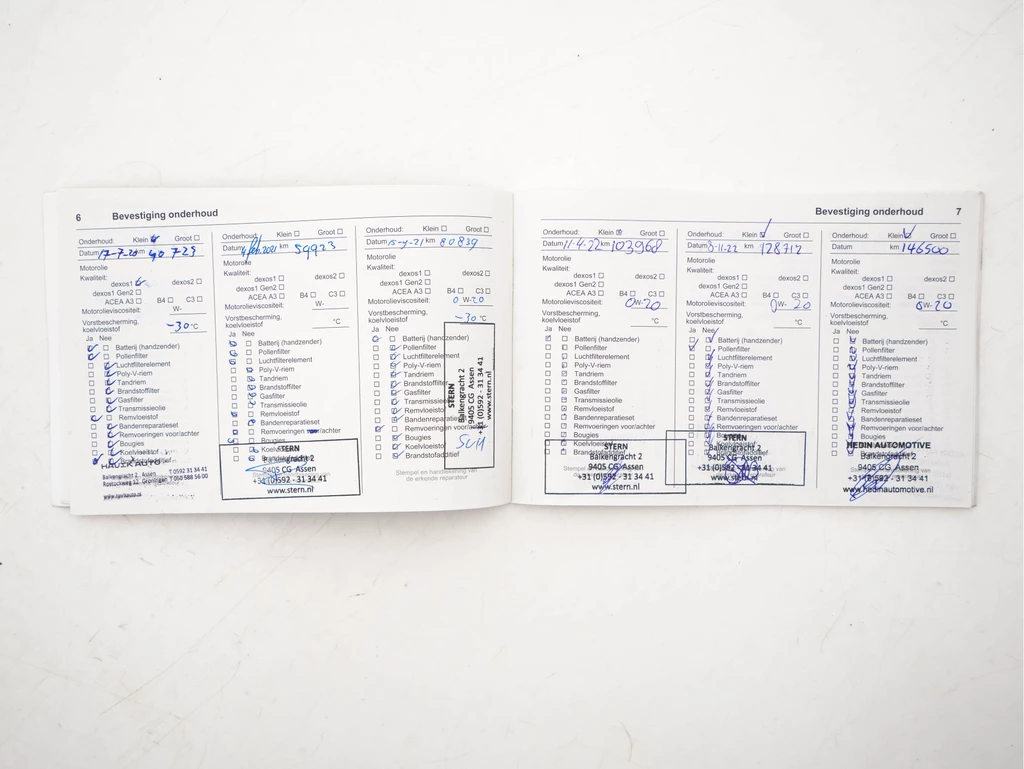 6 Bevestiging onderhoud
Onderhoud: Klein Groot
Datum 17-7-20 km 40723
Motorolie
Kwaliteit:
dexos1 dexos2
dexos1 Gen2
ACEA A3 B4 C3
Motorolieviscositeit: W-
Vorstbescherming, koelvloeistof -30 °C
Ja Nee
Batterij (handzender)
Pollenfilter
Luchtfilterelement
Poly-V-riem
Tandriem
Brandstoffilter
Gasfilter
Transmissieolie
Remvloeistof
Bandenreparatieset
Remvoeringen voor/achter
Bougies
Koelvloeistof
Balkengracht 2 Assen T 0592 31 34 41
Rostockweg 12, Groningen T 050 588 56 00
Onderhoud: Klein Groot
Datum 2021 km 59923
Motorolie
Kwaliteit:
dexos1 dexos2
dexos1 Gen2
ACEA A3 B4 C3
Motorolieviscositeit: W-
Vorstbescherming, koelvloeistof °C
Ja Nee
Batterij (handzender)
Pollenfilter
Luchtfilterelement
Poly-V-riem
Tandriem
Brandstoffilter
Gasfilter
Transmissieolie
Remvloeistof
Bandenreparatieset
Remvoeringen voor/achter
Bougies
STERN
Balkengracht 2
9405 CG Assen
+31 (0)592 - 31 34 41
www.stern.nl
Onderhoud: Klein Groot
Datum 15-4-21 km 80839
Motorolie
Kwaliteit:
dexos1 dexos2
dexos1 Gen2
ACEA A3 B4 C3
Motorolieviscositeit: 0 W-20
Vorstbescherming, koelvloeistof -30 °C
Ja Nee
Batterij (handzender)
Pollenfilter
Luchtfilterelement
Poly-V-riem
Tandriem
Brandstoffilter
Gasfilter
Transmissieolie
Remvloeistof
Bandenreparatieset
Remvoeringen voor/achter
Bougies
Koelvloeistof
Brandstofadditief
Stempel en handtekening van
de erkende reparateur
STERN
Balkengracht 2
9405 CG Assen
+31 (0)592 - 31 34 41
www.stern.nl
Bevestiging onderhoud 7
Onderhoud: Klein Groot
Datum 11-4-22 km 103968
Motorolie
Kwaliteit:
dexos1 dexos2
dexos1 Gen2
ACEA A3 B4 C3
Motorolieviscositeit: 0W-20
Vorstbescherming, koelvloeistof °C
Ja Nee
Batterij (handzender)
Pollenfilter
Luchtfilterelement
Poly-V-riem
Tandriem
Brandstoffilter
Gasfilter
Transmissieolie
Remvloeistof
Bandenreparatieset
Remvoeringen voor/achter
Bougies
Koelvloeistof
Brandstofadditief
STERN
Balkengracht 2
9405 CG Assen
+31 (0)592 - 31 34 41
www.stern.nl
Onderhoud: Klein Groot
Datum -11-22 km 128717
Motorolie
Kwaliteit:
dexos1 dexos2
dexos1 Gen2
ACEA A3 B4 C3
Motorolieviscositeit: 0W-20
Vorstbescherming, koelvloeistof °C
Ja Nee
Batterij (handzender)
Pollenfilter
Luchtfilterelement
Poly-V-riem
Tandriem
Brandstoffilter
Gasfilter
Transmissieolie
Remvloeistof
Bandenreparatieset
Remvoeringen voor/achter
STERN
Balkengracht 2
9405 CG Assen
+31 (0)592 - 31 34 41
www.stern.nl
Onderhoud: Klein Groot
Datum km 146500
Motorolie
Kwaliteit:
dexos1 dexos2
dexos1 Gen2
ACEA A3 B4 C3
Motorolieviscositeit: 0W-20
Vorstbescherming, koelvloeistof °C
Ja Nee
Batterij (handzender)
Pollenfilter
Luchtfilterelement
Poly-V-riem
Tandriem
Brandstoffilter
Gasfilter
Transmissieolie
Remvloeistof
Bandenreparatieset
Remvoeringen voor/achter
Bougies
HEDIN AUTOMOTIVE
Balkengracht 2
9405 CG Assen
+31 (0)592 - 31 34 41
www.hedinautomotive.nl